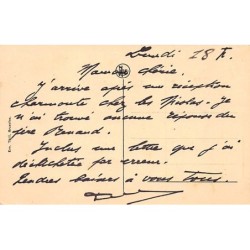 Lundi 18 X.
Maman chérie.
J'arrive après un réception
charmante chez les Nicolas. Je
n'ai trouvé aucune réponse du
père Renard.
Inclus une lettre que j'ai
décachetée par erreur.
Tendres baisers à vous tous.